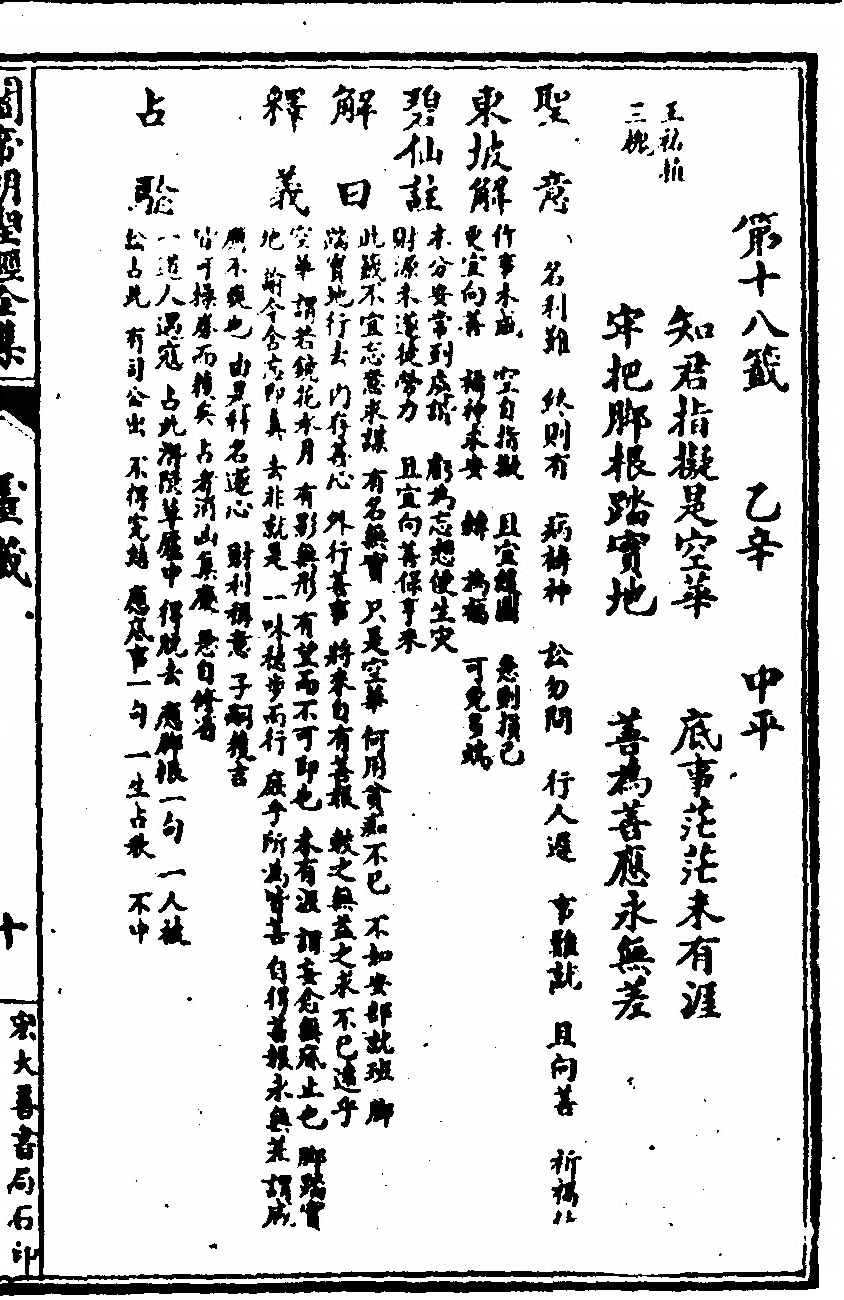 第十八籤 乙辛 中平
王祐植
三槐
知君指擬是空華 底事茫茫未有涯
牢把脚根踏實地 善為善應永無差
聖意 名利難 終則有 病禱神 訟勿問 行人遲 事難就 且向善 祈福
東坡解 作事未成 空自指擬 且宜緩圖 急則損己
更宜向善 禱神求安 轉 為福 可免多端
碧仙註 本分安常到處誇 虧為忘想便生災
財源未遂徒勞力 且宜向善保亨來
解曰 此籤不宜忘意求謀 有名無實 只是空華 何用貪痴不已 不如安部就班 脚
踏實地行去 內存善心 外行善事 將來自有善報 較之無益之求 不已遠乎
釋義 空華 謂若鏡花水月 有影無形 有望而不可即也 未有涯 謂妄念無底止也 脚踏實
地 諭令舍忘即真 去非就是 一味穩步而行 庶乎所為皆善 自得善報永無差 謂感
應不爽也 由是科名遂心 財利稱意 子嗣
皆可操券而穫矣 占者消凶集慶 急自修省
占驗 一道人遇寇 占此得 草廬中 得脫去 應脚根一句 一人被
訟占此 有司公出 不得完結 應底事一句 一生占秋 不中
關帝明聖經全集
靈籤
十
宏大善書局石印